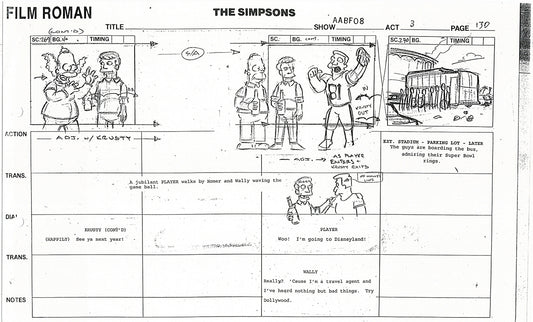 FILM ROMAN
THE SIMPSONS
TITLE
SHOW AABF08 ACT 3 PAGE 130
(CONT'D)
SC. BG. TIMING
SC. BG. cont. TIMING
SC. 290 BG. TIMING
81
IN
KRUSTY
OUT
ACTION
ADJ. w/ KRUSTY
ADJ.
AS PLAYER
ENTERS +
KRUSTY EXITS
EXT. STADIUM - PARKING LOT - LATER
The guys are boarding the bus,
admiring their Super Bowl
rings.
TRANS.
A jubilant PLAYER walks by Homer and Wally waving the
game ball.
DIA
KRUSTY (CONT'D)
(HAPPILY) See ya next year!
PLAYER
Woo! I'm going to Disneyland!
TRANS.
WALLY
Really? 'Cause I'm a travel agent and
I've heard nothing but bad things. Try
Dollywood.
NOTES